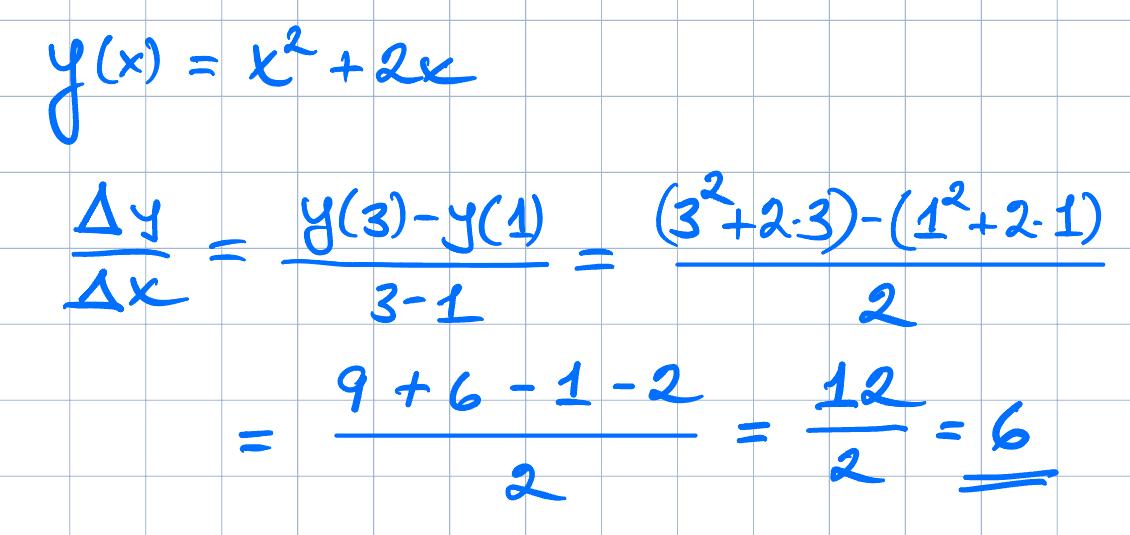 y(x) = x² + 2x
Δy/Δx = (y(3) - y(1))/(3 - 1) = ((3² + 2·3) - (1² + 2·1))/2
= (9 + 6 - 1 - 2)/2 = 12/2 = 6